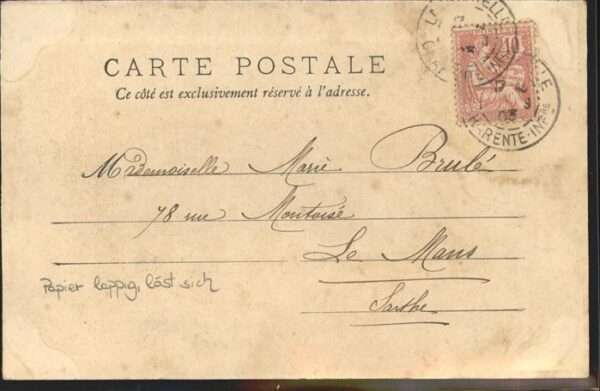 CARTE POSTALE
Ce côté est exclusivement réservé à l'adresse.
Mademoiselle Marie Brulé
78 rue Montoisé
Le Mans
Sarthe
Papier lappig, löst sich
10
03